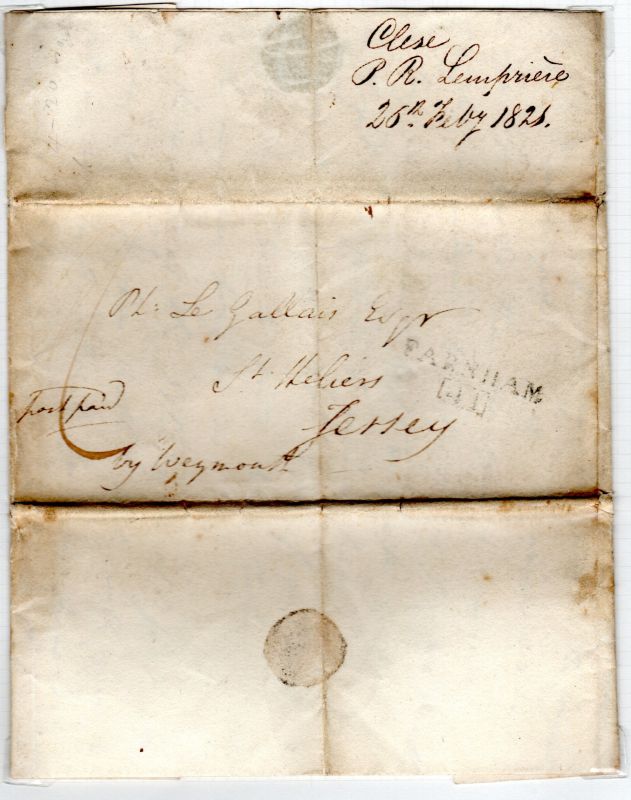 Clese
P. R. Lemprière
26th Feby 1821.
Ph: Le Gallais Esqr
St Heliers
Jersey
post paid
by Weymouth
FARNHAM